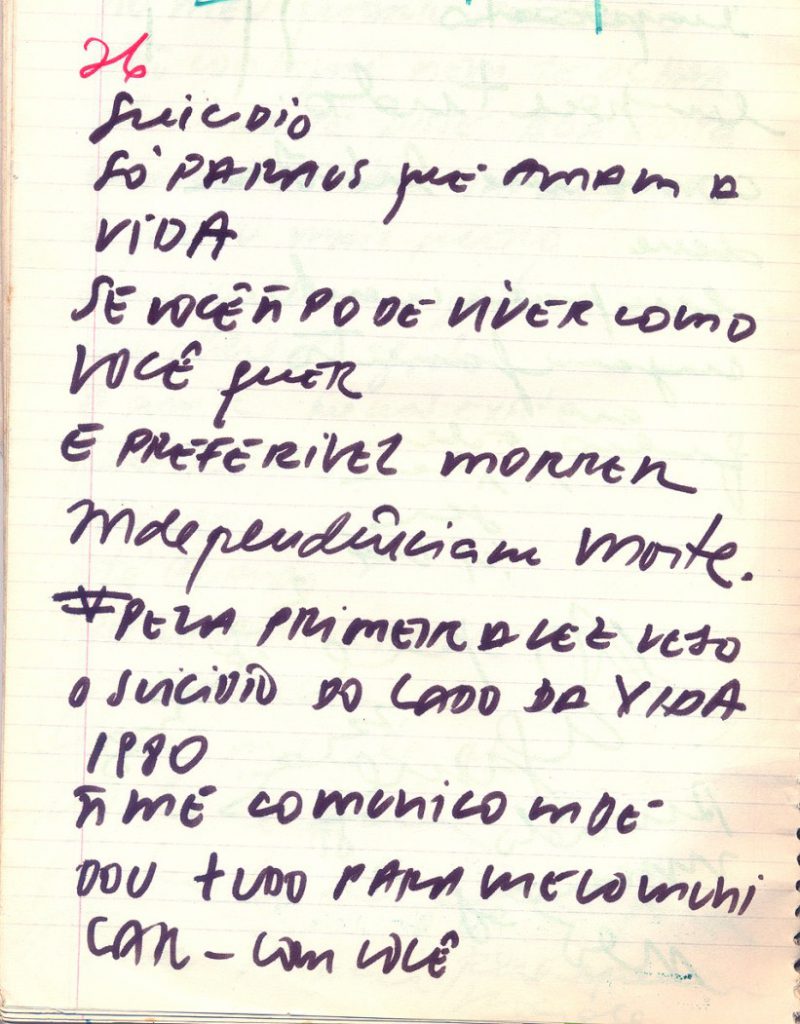 26
Suicidio
SÓ PARA OS que AMAM A
VIDA
SE VOCÊ ñ PODE VIVER COMO
VOCÊ quER
E PREFERIVEL MORRER
Independência ou Morte.
PELA PRIMEIRA VEZ VEJO
O SUICIDIO DO LADO DA VIDA
1980
ñ ME COMUNICO
DOU TUDO PARA ME COMUNI
CAR – com VOCÊ